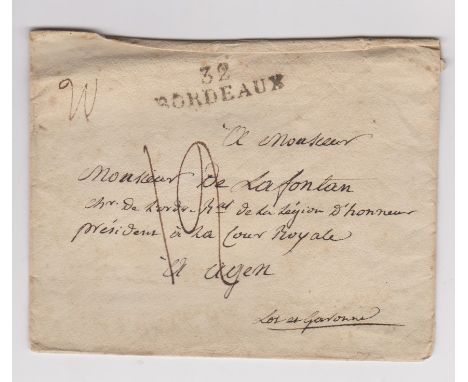 32
BORDEAUX
A Monsieur
Monsieur De Lafontan
chr. de L'ordr. R.al de la Légion D'honneur
président à la Cour Royale
A agen
Lot et Garonne